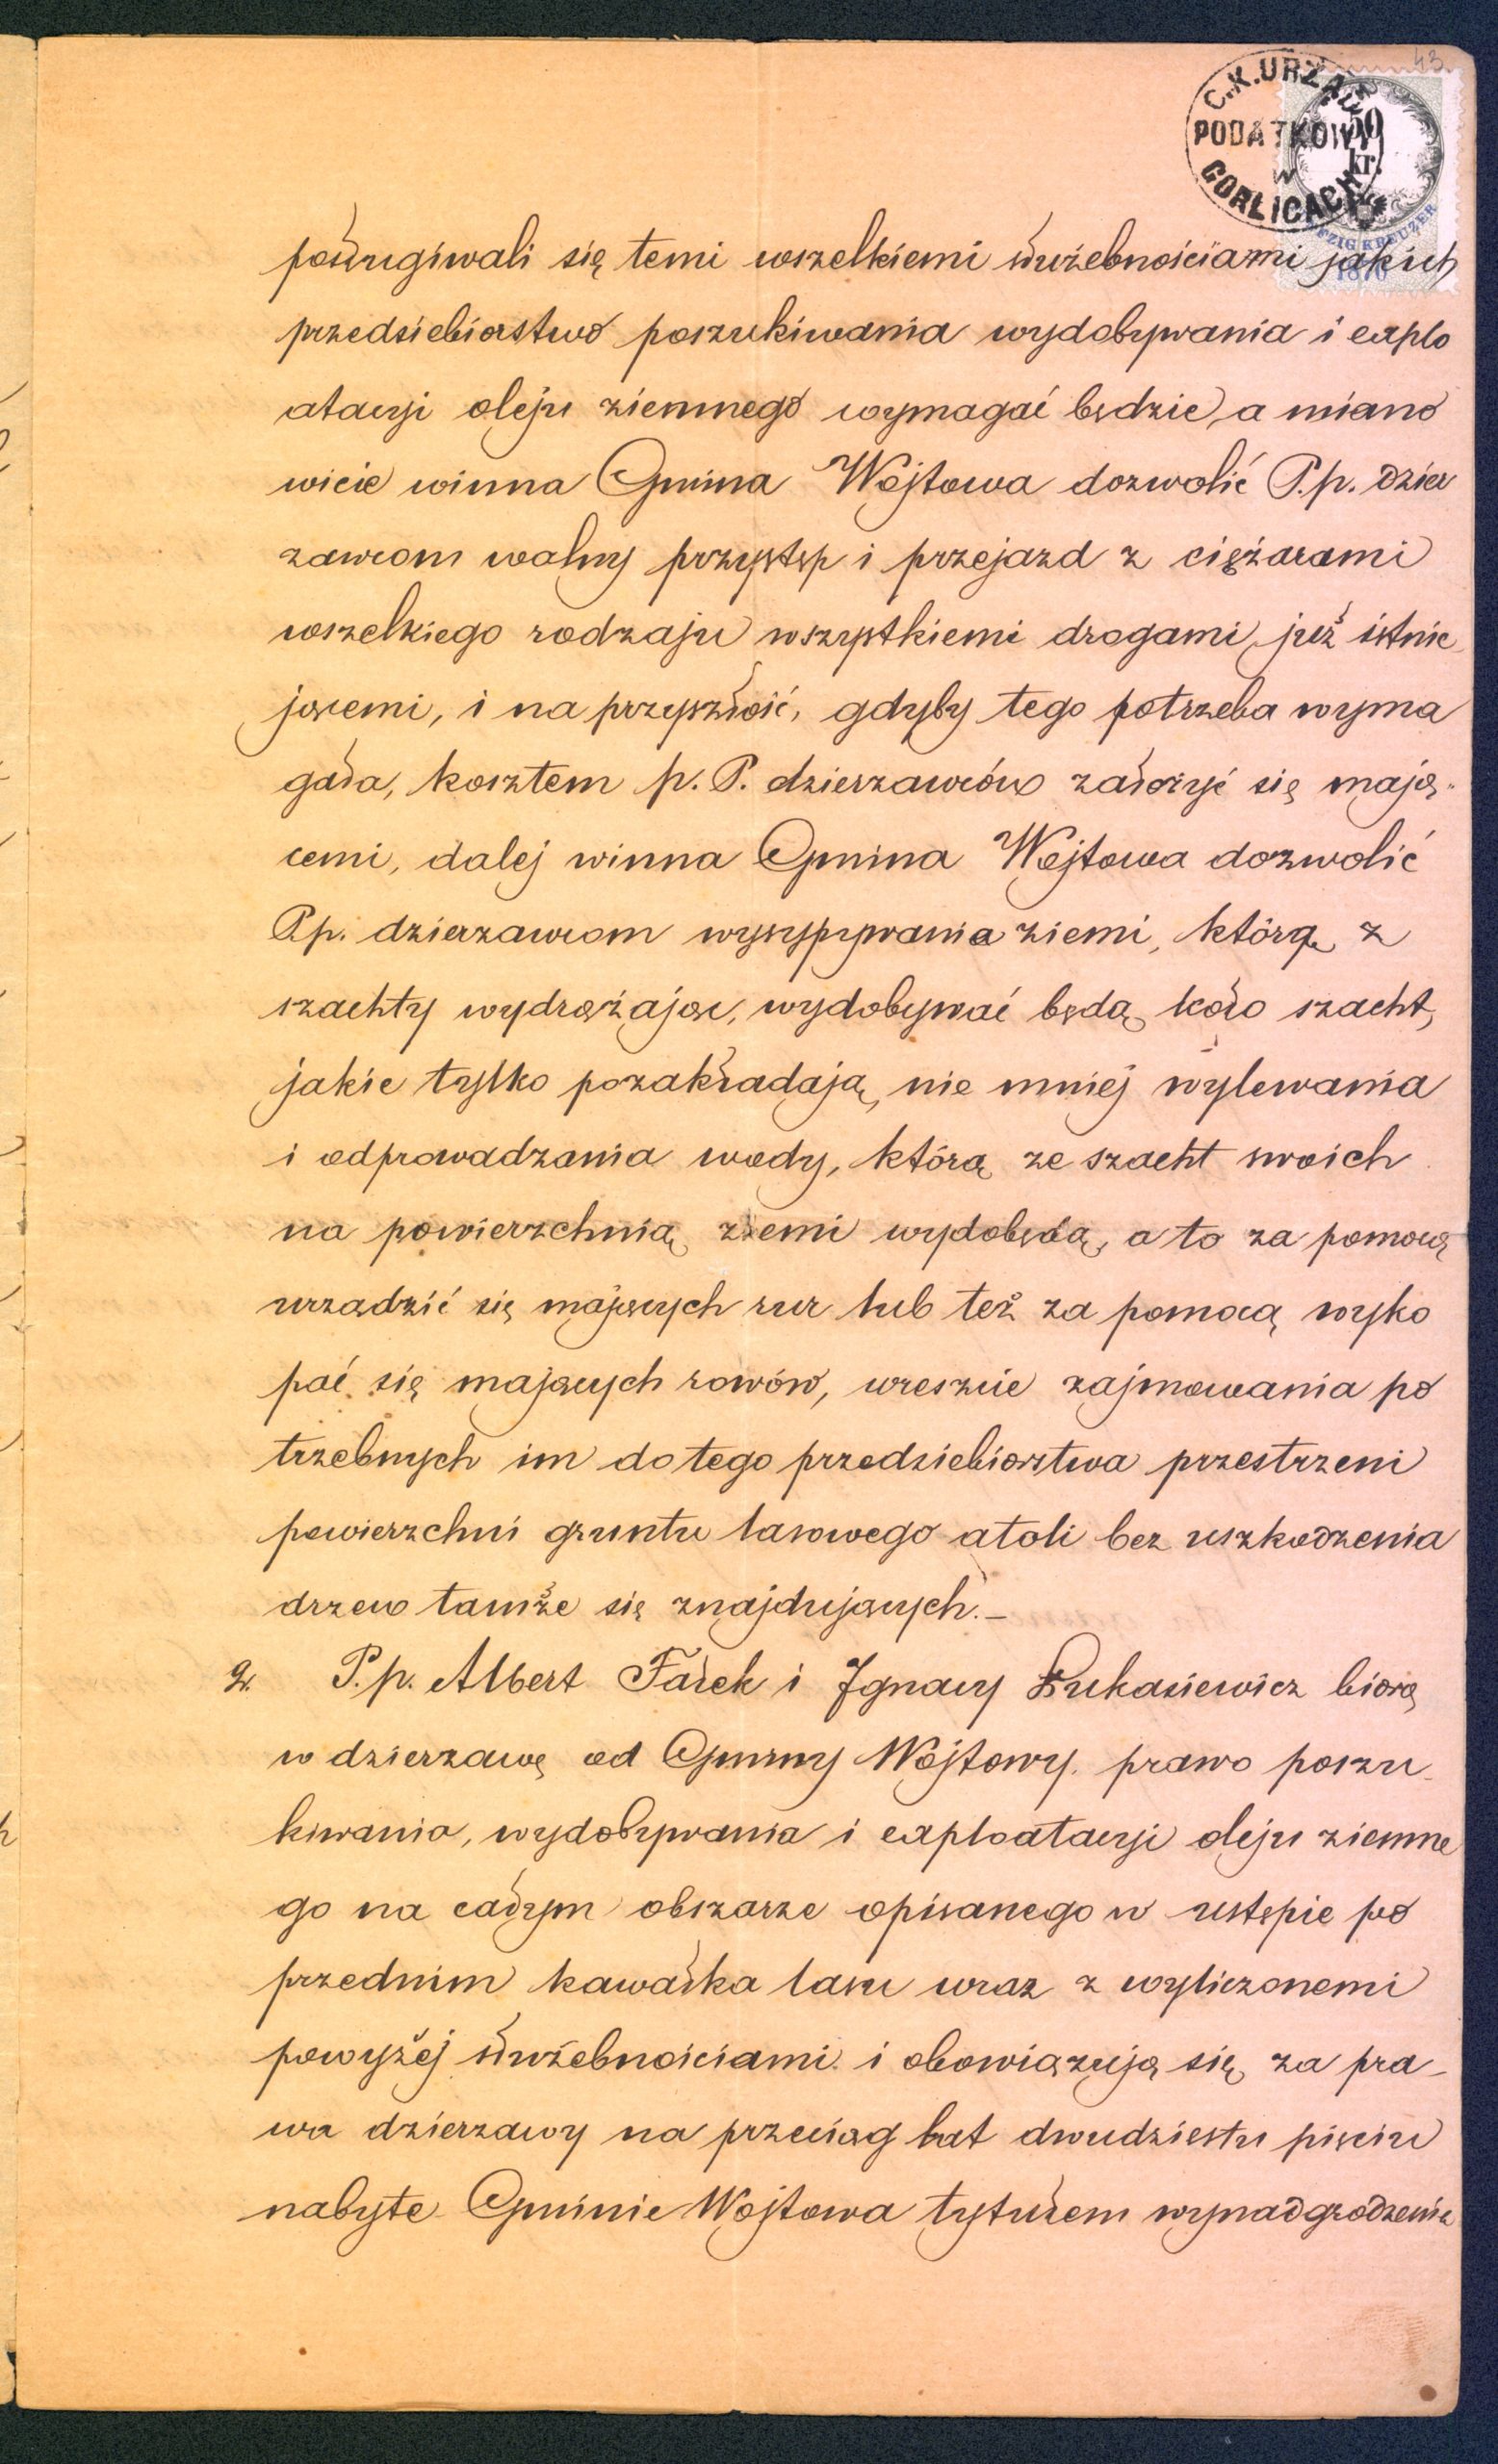 43
C.K. URZĄD
PODATKOWY
W
GORLICACH
50
kr.
KREUZER
posługiwali się temi wszelkiemi służebnościami jakich
przedsiebiorstwo poszukiwania wydobywania i explo
atacyi oleju ziemnego wymagać będzie, a miano
wicie winna Gmina Wójtowa dozwolić P.p. dzier
zawcom wolny przystęp i przejazd z ciężarami
wszelkiego rodzaju wszystkiemi drogami, już istnie
jącemi, i na przyszłość, gdyby tego potrzeba wyma
gała, kosztem p. P. dzierzawców założyć się mają„
cemi, dalej winna Gmina Wójtowa dozwolić
P.p. dzierzawcom wysypywania ziemi, którą z
szachty wydrążając, wydobywać będą, koło szacht,
jakie tylko pozakładają, nie mniej wylewania
i odprowadzania wody, którą ze szacht swoich
na powierzchnią ziemi wydobędą, a to za pomocą
urządzić się mających rur lub też za pomocą wyko
pać się mających rowów, wreszcie zajmowania po
trzebnych im do tego przedziebiorstwa przestrzeni
powierzchni gruntu lasowego atoli bez uszkodzenia
drzew tamże się znajdujących.–
2. P.p. Albert Fałek i Ignacy Łukasiewicz biorą
w dzierzawę od Gminy Wójtowy prawo poszu-
kiwania, wydobywania i exploatacyi oleju ziemne
go na całym obszarze opisanego w ustępie po
przednim kawałka lasu wraz z wyliczonemi
powyżej służebnościami i obowiązują się za pra-
wa dzierzawy na przeciąg lat dwudziestu pięciu
nabyte Gminie Wójtowa tytułem wynadgrodzenia